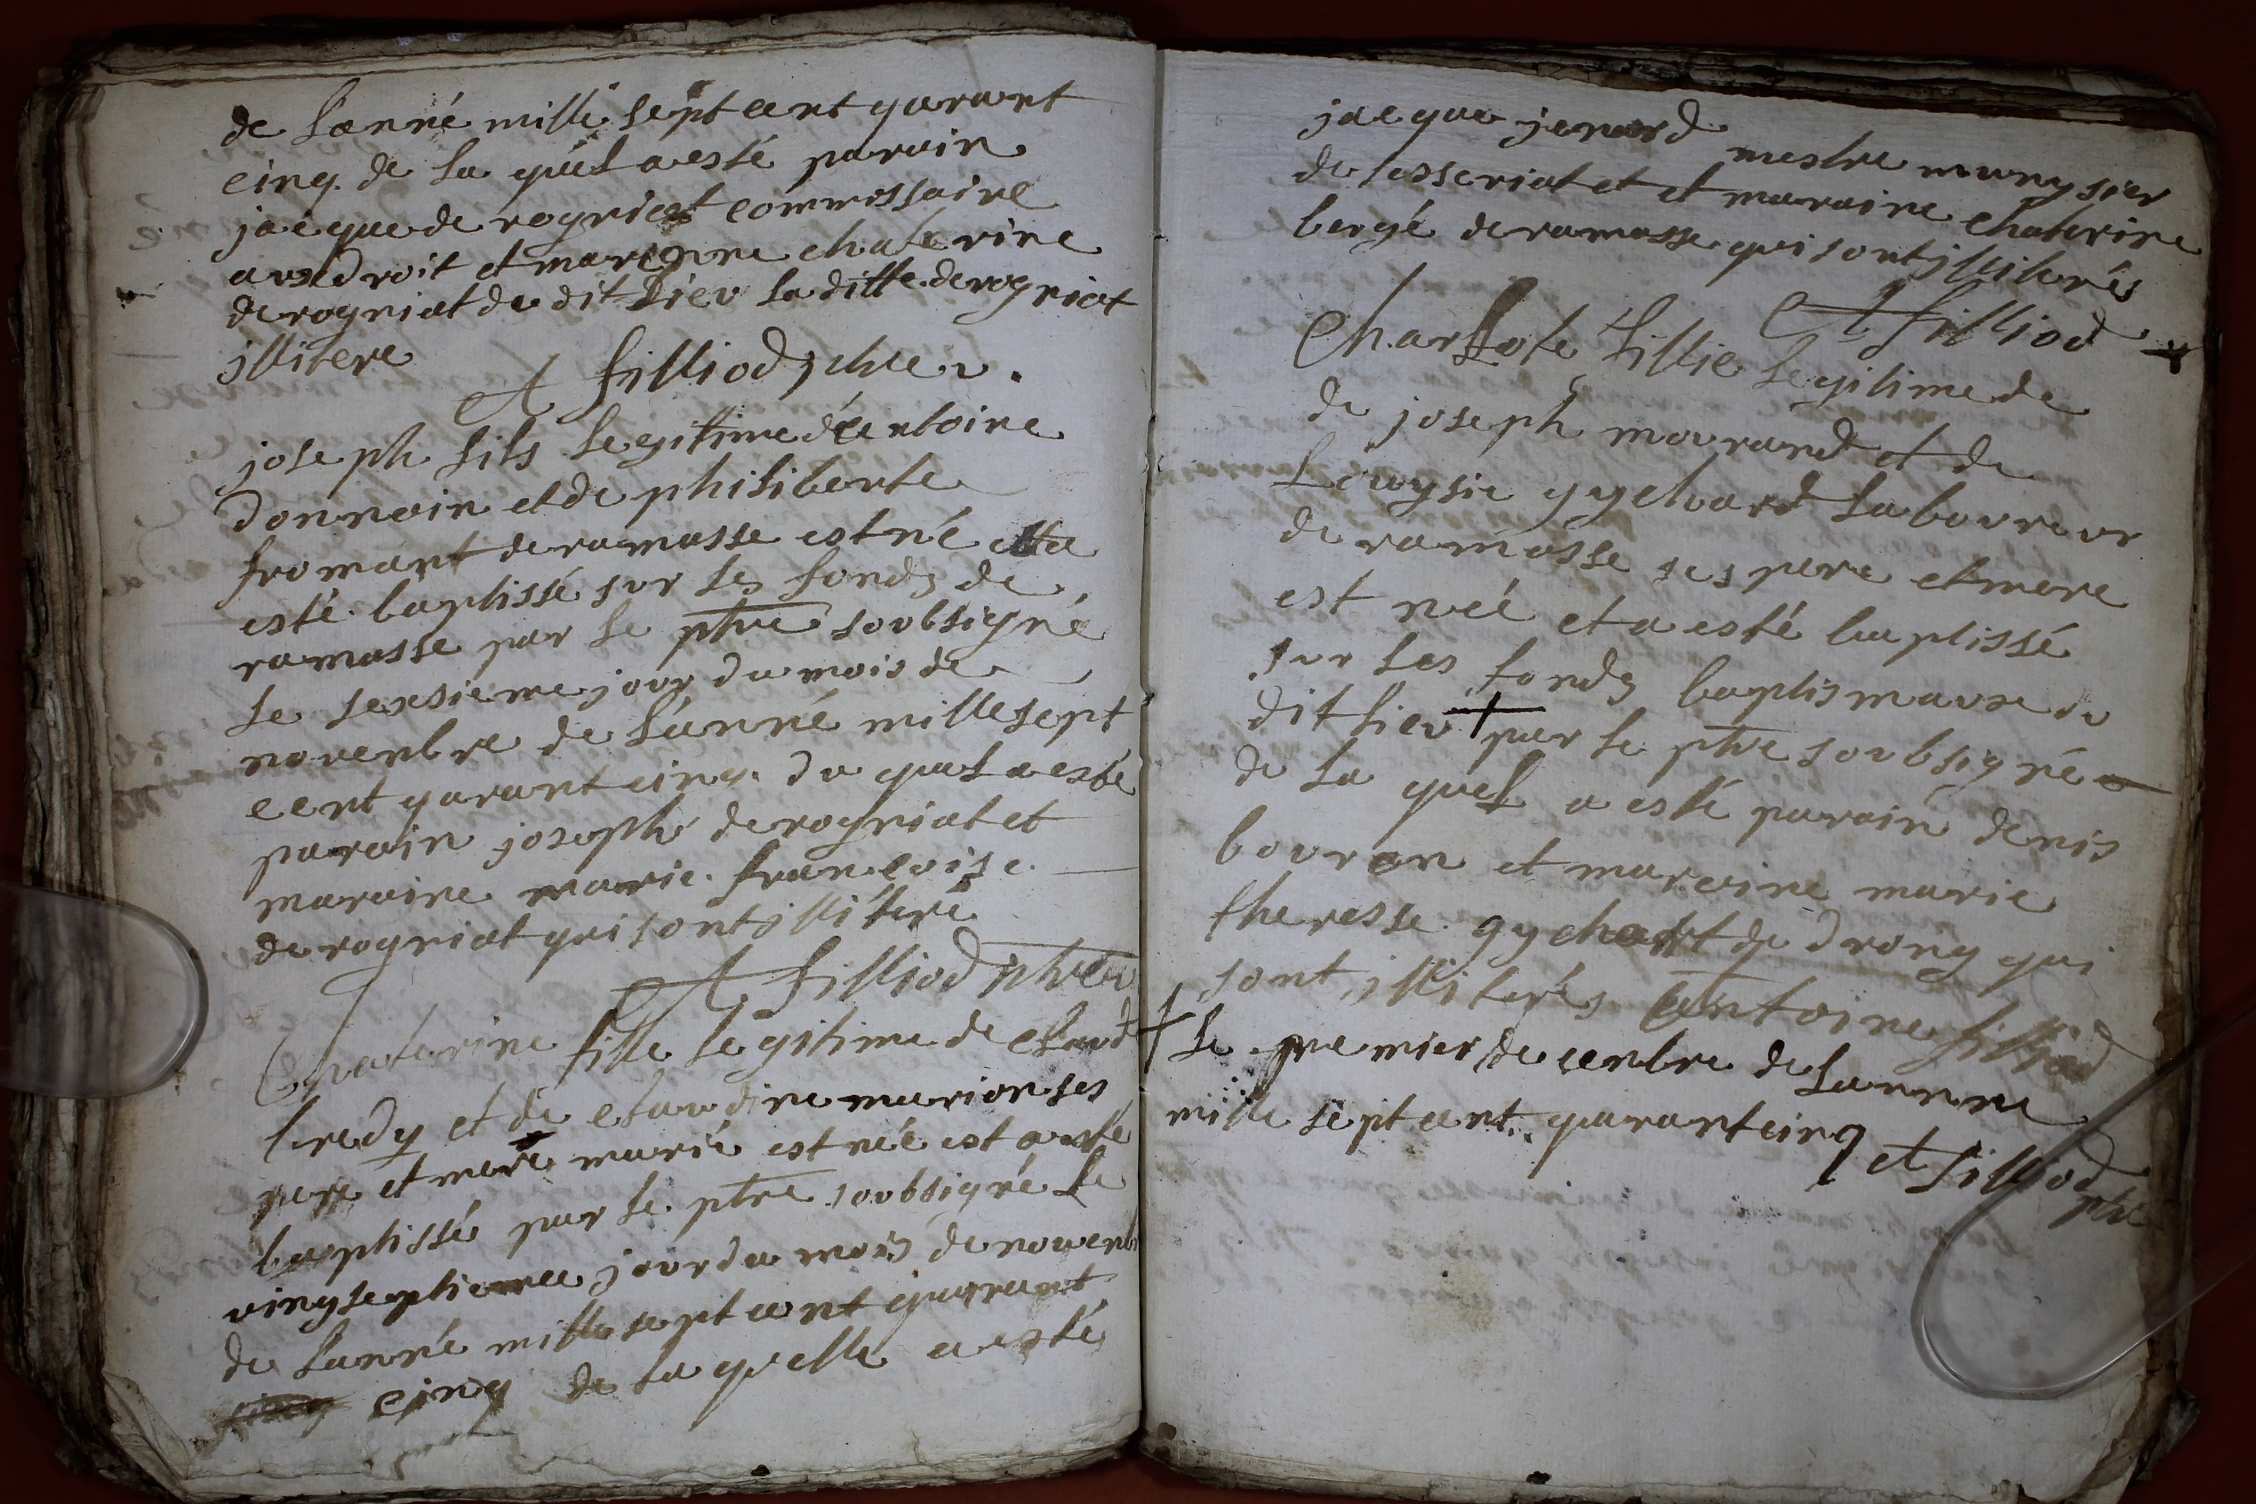 de lanné mille sept cent garant
cinq. de la quel a esté parain
jacque de rogniat commissaire
aux droit et maraine chaterine
derogniat de dit lieu la ditte derogniat
jllitere
A filliod ptre v.
joseph fils legitime dentoine
donnain et de philiberte
fromant de ramasse est né et a
esté baptissé sur les fonds de
ramasse par le ptre soubsigné
le sexsieme jour du mois de
novenbre de lanné mille sept
cent garant cinq. du quel a esté
parain joseph derogniat et
maraine marie francoise
de rogniat qui sont jllitere
A filliod ptre v
Chaterine fille legitime de claude
bredy et de claudine marion ses
pere et mere marié est née est a este
baptissé par le ptre soubsigné le
vingseptieme jour du mois de novenb
de lanné mille sept cent quarant
cinq de la quelle a esté
jacque jenard mestre
de et maraine chaterine
bergé de ramasse qui sont jlliterés
A filliod
Charlote fillie legitime de
de joseph mourand et de
Lowysie gychard laboureur
de ramasse ses pere et mere
est née et a esté baptissé
sur les fonds baptismaux du
dit lieu + par le ptre soubsigné
de la quel a esté parain denis
bouron et maraine marie
theresse gychart de drong qui
sont illiterés antoine filliod
+ le premier decenbre de lanne
mille sept cent quarant cinq
A filliod
ptre